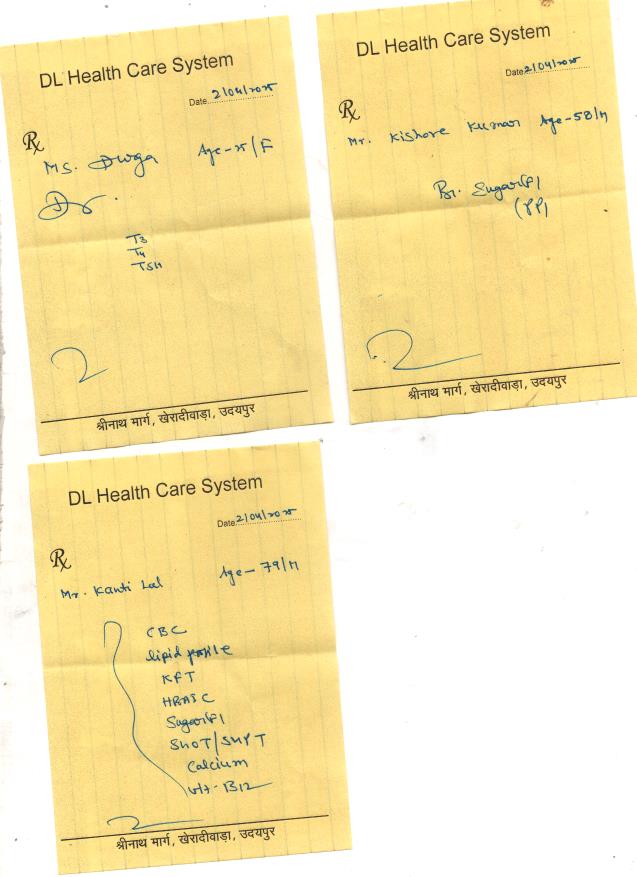 DL Health Care System
Date 2/04/2025
Rx
Ms. Durga Age-25/F
T3
T4
TSH
श्रीनाथ मार्ग, खेरादीवाड़ा, उदयपुर
DL Health Care System
Date 2/04/2025
Rx
Mr. Kishore Kumar Age-58/M
Bl. Sugar(F)
(PP)
श्रीनाथ मार्ग, खेरादीवाड़ा, उदयपुर
DL Health Care System
Date 2/04/2025
Rx
Mr. Kanti Lal Age-79/M
CBC
lipid profile
KFT
HBA1C
Sugar(F)
SGOT/SGPT
Calcium
vit-B12
श्रीनाथ मार्ग, खेरादीवाड़ा, उदयपुर